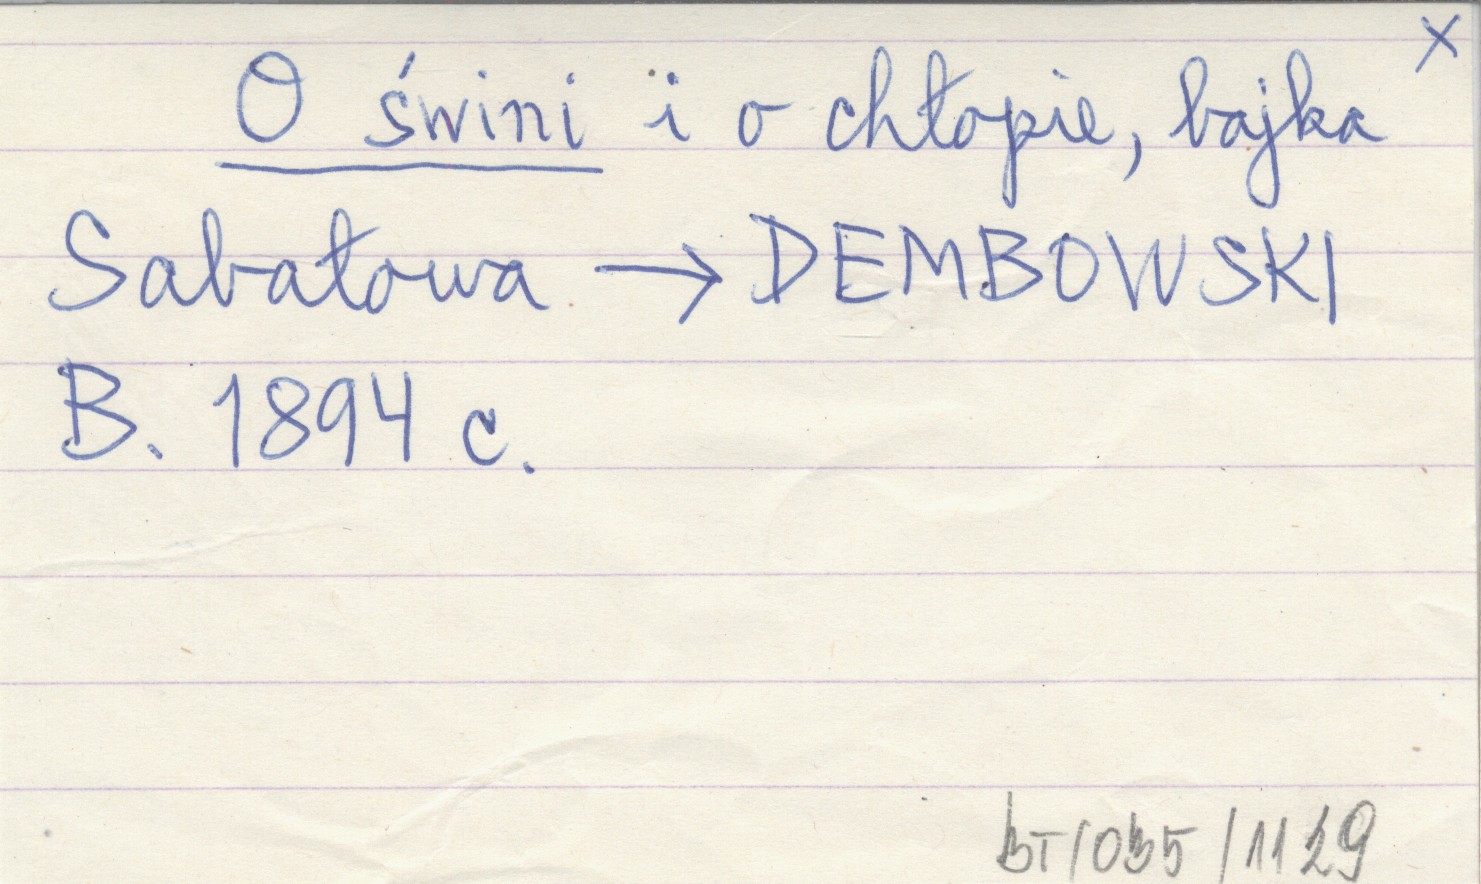 X
O świni i o chłopie, bajka
Sabałowa → DEMBOWSKI
B. 1894 c.
BT/035/1129